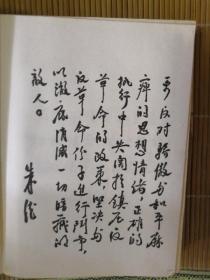 要反对骄傲与和平麻
痹的思想情绪,正确的
执行中央关于镇压反
革命的政策坚决与
反革命份子进行鬥争,
以澈底消滅一切暗藏的
敌人。
朱德